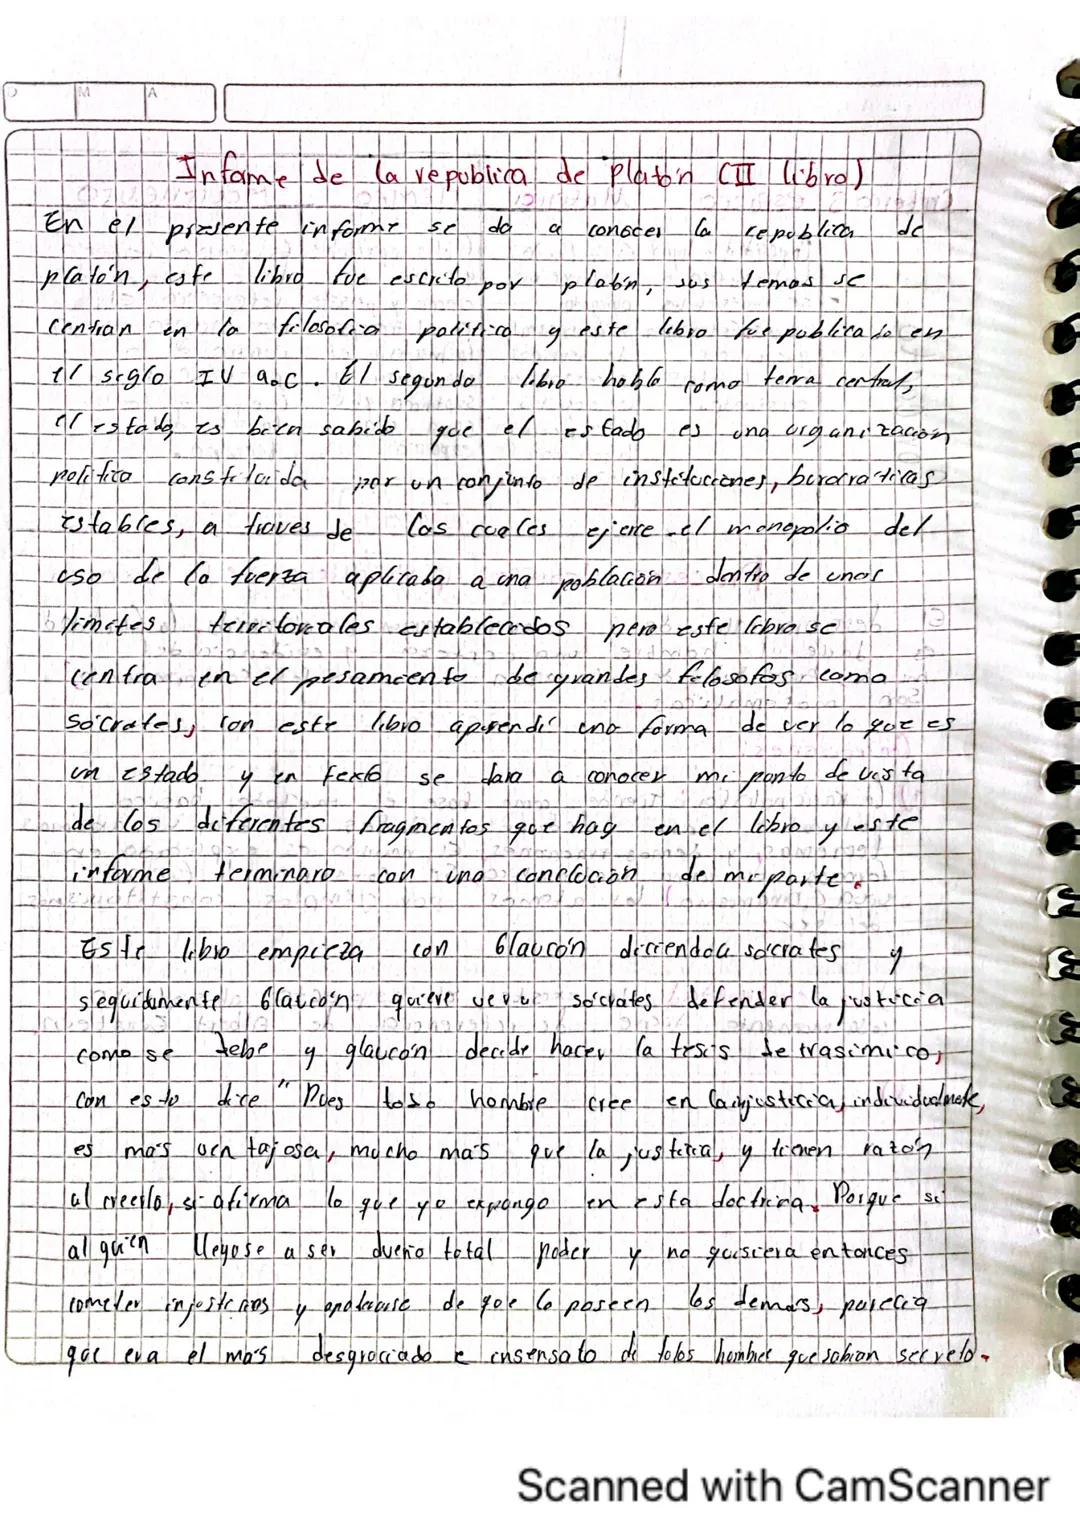 D M A
Informe de la republica de Platón (II libro)
En el presente informe se da a conocer la republica de
platón, este libro fue escrito por platón, sus temas se
centran en la filosofia politica y este libro fue publicado en
el siglo IV a.c. El segundo libro habla como tema central,
el estado, es bien sabido que el estado es una organización
politica constituida por un conjunto de instituciones, burocraticas
estables, a traves de los cuales ejerce el monopolio del
uso de la fuerza aplicada a una población dentro de unos
limites territoriales establecidos pero este libro se
centra en el pesamiento de grandes filosofos como
sócrates, con este libro aprendí una forma de ver lo que es
un estado y en se dara a conocer mi punto de vista
de los diferentes fragmentos que hay en el libro y este
informe terminara con una conclución de mi parte.
Este libro empieza con Glaucón diciendo a sócrates y
seguidamente Glaucón quiere ver a sócrates defender la justicia
como se debe y glaucón decide hacer la tesis de trasimico,
con esto dice "Pues todo hombre cree en la injusticia, individualmente,
es más ventajosa, mucho más que la justicia, y tienen razón
al creerlo, si afirma lo que yo expongo en esta doctrina. Porque si
alguien llegase a ser dueño total poder y no quisiera entonces
cometer injusticias y apoderarse de que lo poseen los demas, pareciа
que era el más desgraciado e insensato de todos hombre que sabian secreto.
Scanned with CamScanner